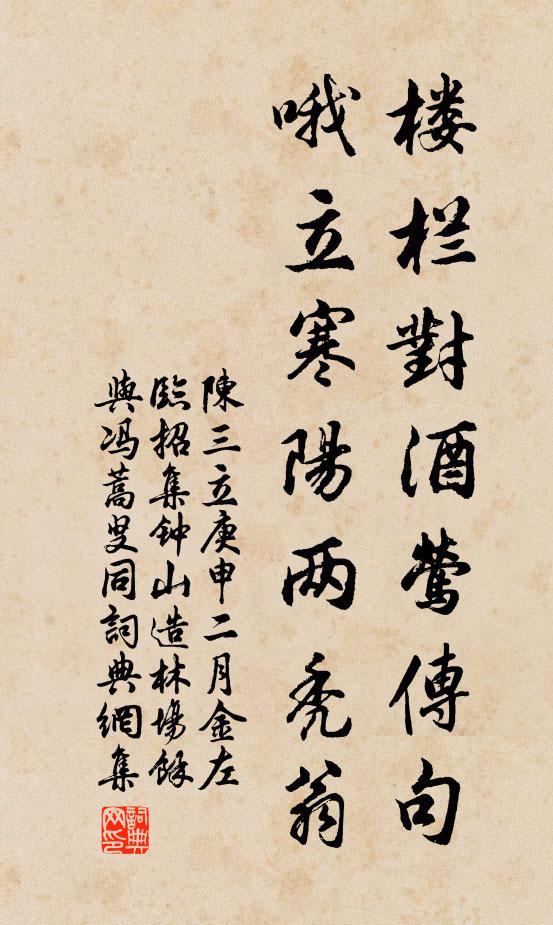 楼栏對酒莺傳句
哦立寒陽两秃翁
陳三立庚申二月金左
臨招集钟山造林場餘
與冯蒿叟同詞典網集
詞典网印